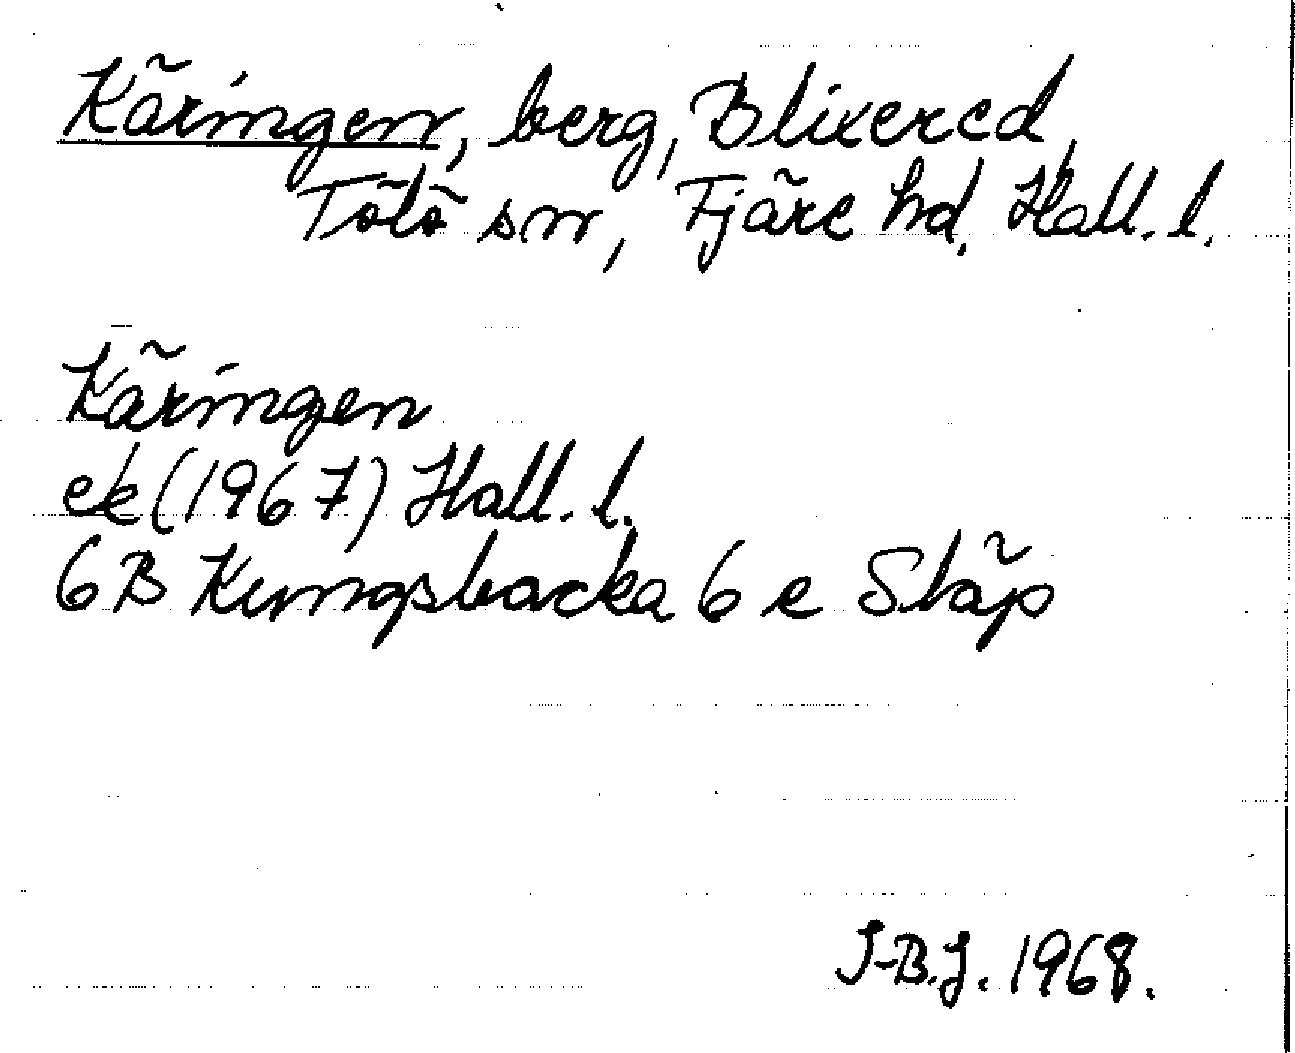 Käringen, berg, Blixered,
Tölö sn, Fjäre hd, Hall. l.
Käringen
ek (1967) Hall. l.
6B Kungsbacka 6 e Släp
J-B.J. 1968.